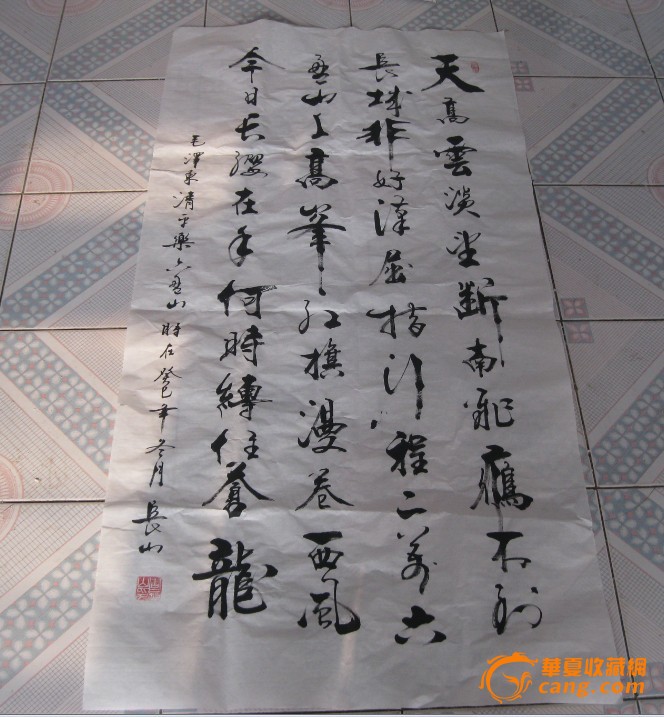 天高雲淡望斷南飛鴈不到
長城非好漢屈指行程二萬六
盤山上高峯紅旗漫卷西風
今日長纓在手何時縛住蒼龍
毛澤東清平樂六盤山時在癸巳年冬月長山
華夏收藏網
cang.com